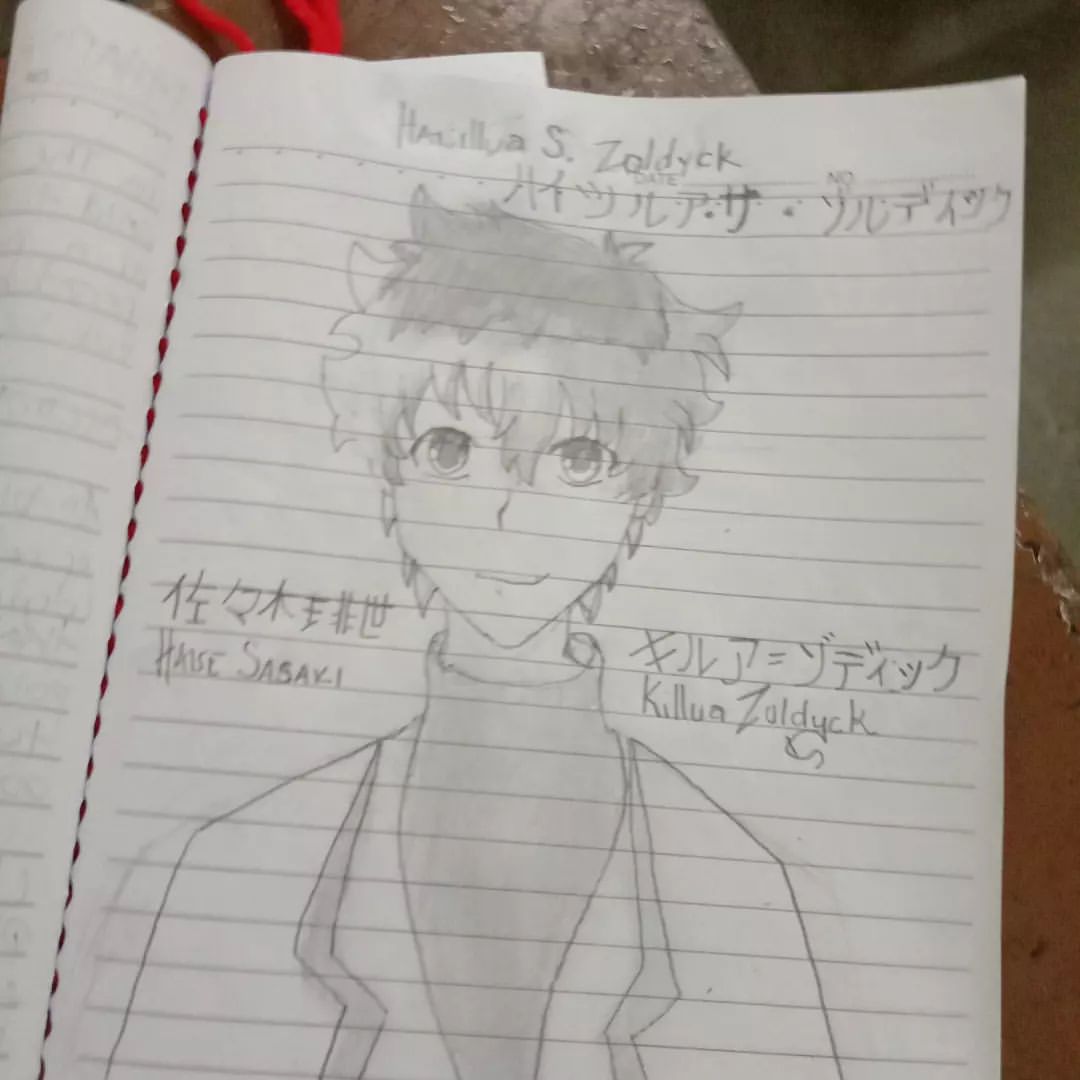 S. Zoldyck
DATE NO
ハイツルア・ザ・ゾルディック
佐々木琲世
HAISE SASAKI
キルア=ゾディック
Killua Zoldyck